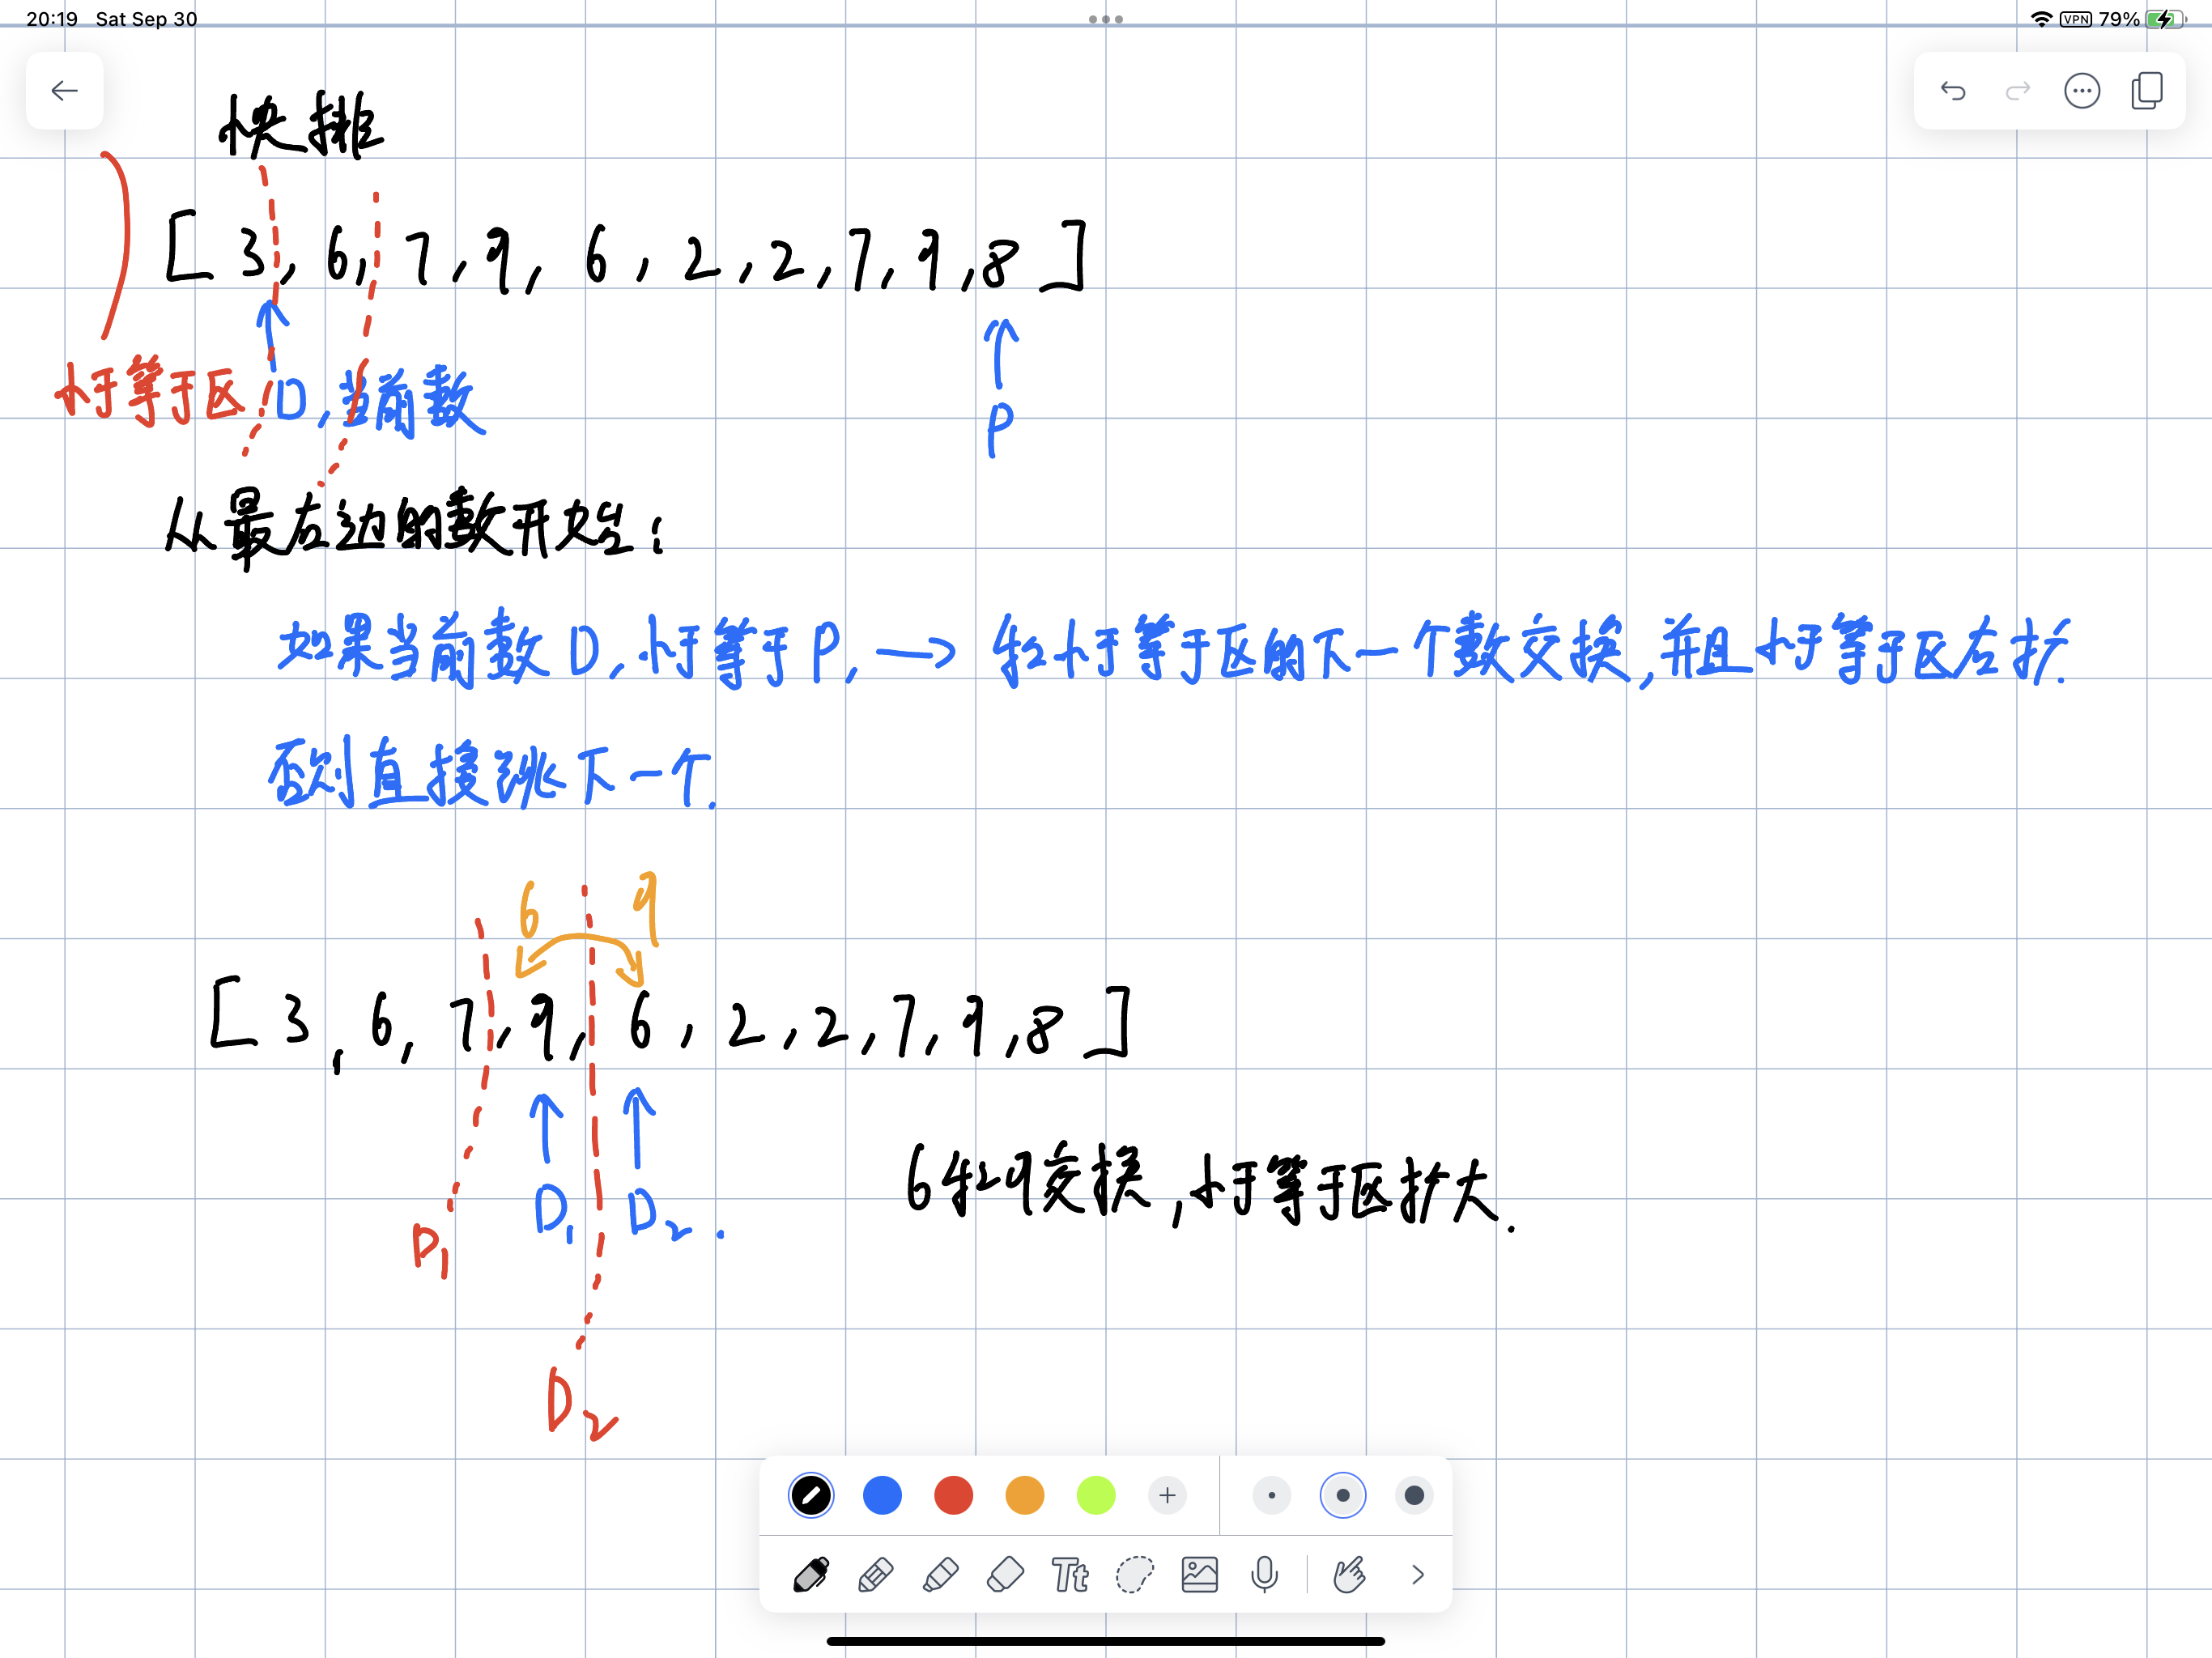 20:19 Sat Sep 30
VPN 79%
快排
[ 3, 6, 7, 9, 6, 2, 2, 7, 9, 8 ]
小于等于区 D, 当前数
P
从最左边的数开始:
如果当前数D, 小于等于P, → 和小于等于区的下一个数交换, 并且小于等于区右扩.
否则直接跳下一个.
6 9
[ 3, 6, 7, 9, 6, 2, 2, 7, 9, 8 ]
D1 D2.
6和9交换, 小于等于区扩大.
D1
D2
Tt